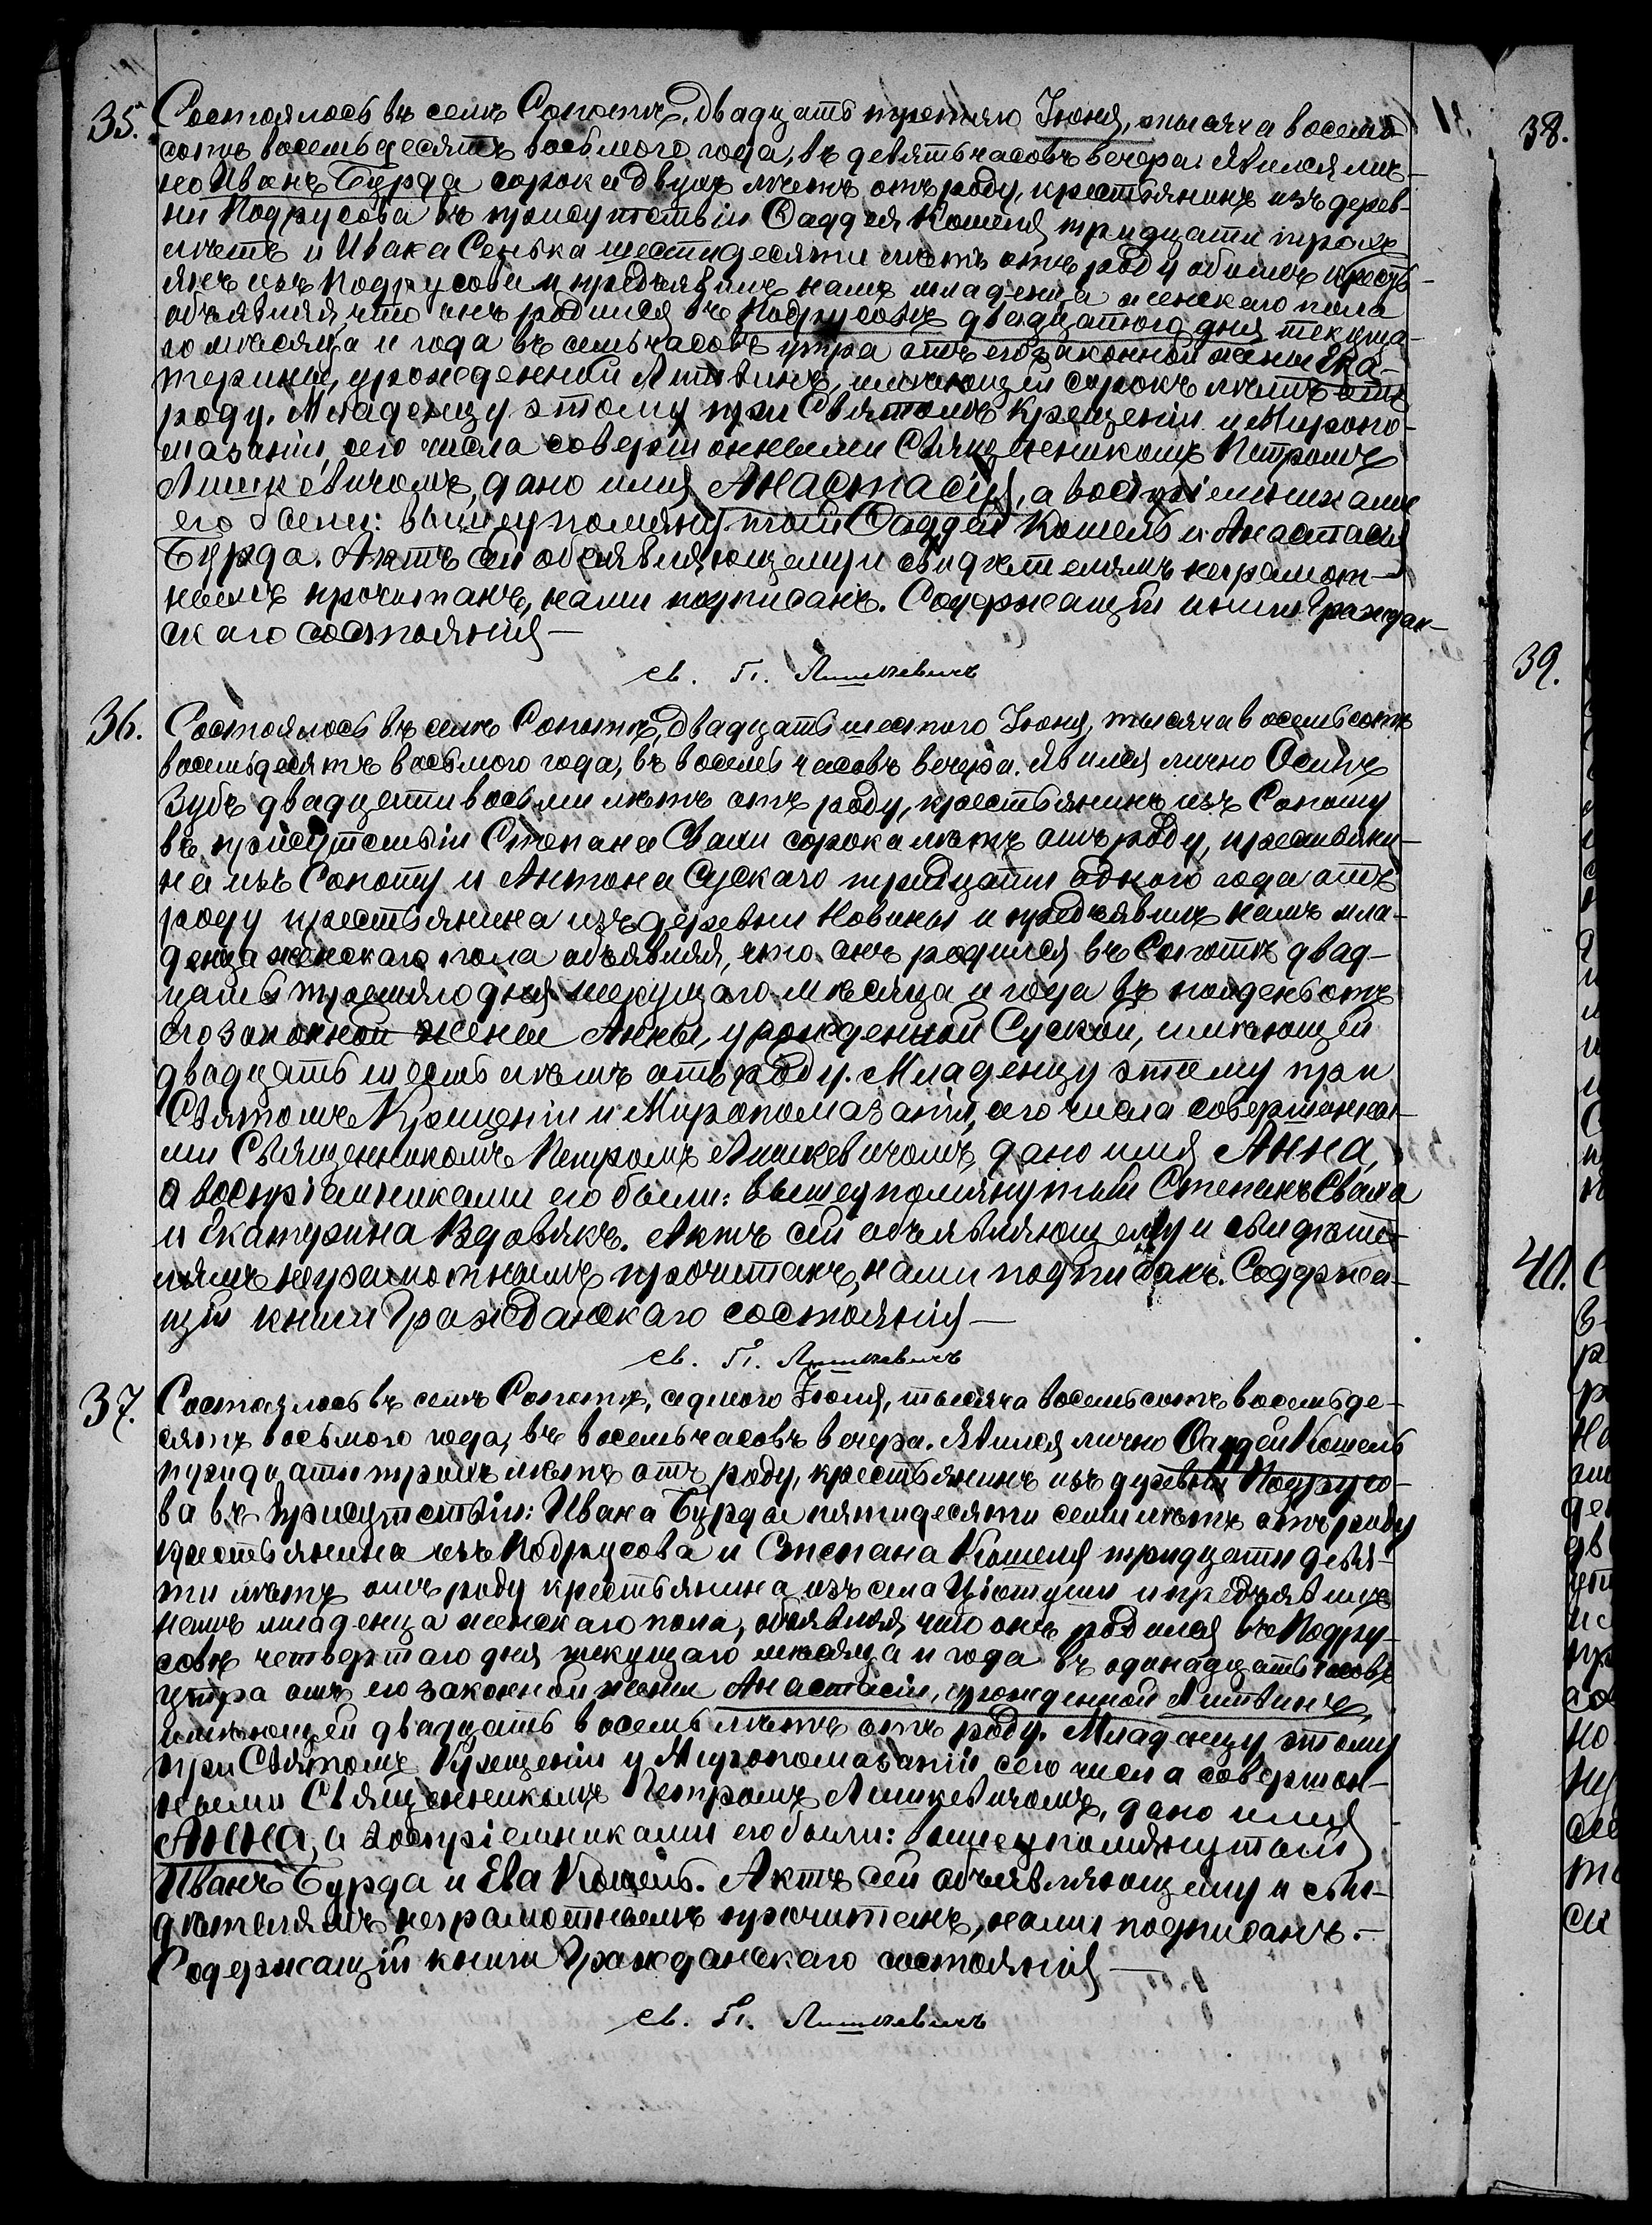 35. Состоялось въ селѣ Сопотѣ, двадцать третьяго Іюня, тысяча восемь
сотъ восемьдесятъ восьмого года, въ девять часовъ вечера. Явился лич-
но Иванъ Бурда сорока двухъ лѣтъ отъ роду, крестьянинъ изъ дерев-
ни Подрусова въ присутствіи Фаддея Кошеля тридцати трехъ
лѣтъ и Ивана Сенька шестидесяти лѣтъ отъ роду обоихъ кресть-
янъ изъ Подрусова и предъявилъ намъ младенца женскаго пола
объявляя, что онъ родился въ Подрусовѣ двадцатого дня текуща-
го мѣсяца и года въ семь часовъ утра отъ его законной жены Ека-
терины, урожденной Литвинъ, имѣющей сорокъ лѣтъ отъ
роду. Младенцу этому при Святомъ Крещеніи и Миропо-
мазаніи, сего числа совершонными Священникомъ Петромъ
Ляшкевичомъ, дано имя Анастасія, а воспріемниками
его были: вышеупомянутый Фаддей Кошель и Анастасія
Бурда. Актъ сей объявляющему и свидѣтелямъ неграмот-
нымъ прочитанъ, нами подписанъ. Содержащій книги Граждан-
скаго состоянія —
св. П. Ляшкевичъ
36. Состоялось въ селѣ Сопотѣ, двадцать шестого Іюня, тысяча восемьсотъ
восемьдесятъ восьмого года, въ восемь часовъ вечера. Явился лично Осипъ
Зубъ двадцати восьми лѣтъ отъ роду, крестьянинъ изъ Сопоту
въ присутствіи Степана Свали сорока лѣтъ отъ роду, крестьяни-
на изъ Сопоту и Антона Суского тридцати одного года отъ
роду крестьянина изъ деревни Новины и предъявилъ намъ мла-
денца женскаго пола объявляя, что онъ родился въ Сопотѣ двад-
цать третьяго дня текущаго мѣсяца и года въ полдень отъ
его законной жены Анны, урожденной Суской, имѣющей
двадцать шесть лѣтъ отъ роду. Младенцу этому при
Святомъ Крещеніи и Миропомазаніи, сего числа совершонны-
ми Священникомъ Петромъ Ляшкевичомъ, дано имя Анна,
а воспріемниками его были: вышеупомянутый Степанъ Сваля
и Екатерина Вдовякъ. Актъ сей объявляющему и свидѣте-
лямъ неграмотнымъ прочитанъ, нами подписанъ. Содержа-
щій книги Гражданскаго состоянія —
св. П. Ляшкевичъ
37. Состоялось въ селѣ Сопотѣ, седмого Іюля, тысяча восемьсотъ восемьде-
сятъ восьмого года, въ восемь часовъ вечера. Явился лично Фаддей Кошель
тридцати трехъ лѣтъ отъ роду, крестьянинъ изъ деревни Подрусо-
ва въ присутствіи: Ивана Бурды пятидесяти семи лѣтъ отъ роду
крестьянина изъ Подрусова и Степана Кошеля тридцати девя-
ти лѣтъ отъ роду крестьянина изъ села Цютуши и предъявилъ
намъ младенца женскаго пола, объявляя, что онъ родился въ Подру-
совѣ четвертаго дня текущаго мѣсяца и года въ одинадцать часовъ
утра отъ его законной жены Анастасіи, урожденной Литвинъ,
имѣющей двадцать восемь лѣтъ отъ роду. Младенцу этому
при Святомъ Крещеніи и Миропомазаніи сего числа совершон-
ными Священникомъ Петромъ Ляшкевичомъ, дано имя
Анна, а воспріемниками его были: вышеупомянутый
Иванъ Бурда и Ева Кошель. Актъ сей объявляющему и сви-
дѣтелямъ неграмотнымъ прочитанъ, нами подписанъ. —
Содержащій книги Гражданскаго состоянія —
св. П. Ляшкевичъ
38.
39.
40.